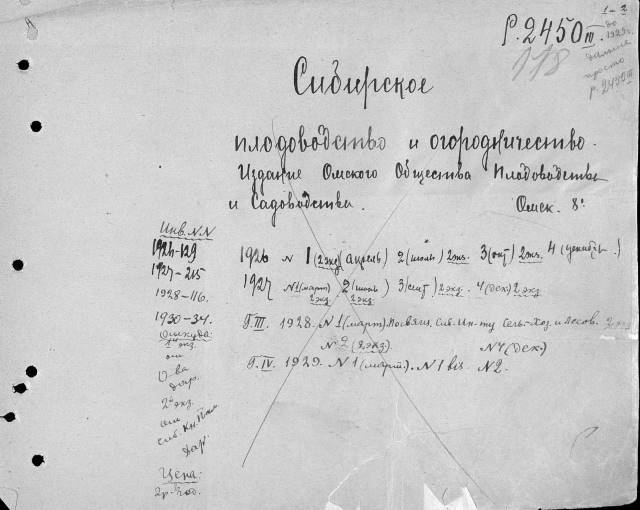 Р.2450 III.
1-2
до
1929.
дальше
просто
р.2450 III
118
Сибирское
плодоводство и огородничество.
Издание Омского Общества Плодоводства
и Садоводства. Омск. 8°
Инв.N.N
1926-129
1927-215
1928-116.
1930-34.
Откуда:
1й экз.
от
О-ва
дар.
2й экз.
от
Сиб. Кн.
дар.
Цена:
2р. год.
1926 N 1 (2 экз) (апрель) 2 (июль) 2 экз. 3 (окт) 2 экз. 4 (декабрь.)
1927 N1 (март) 2 экз. 2 (июль) 2 экз. 3 (сент) 2 экз. 4 (дек) 2 экз
Г.III. 1928. N 1 (март) Посвящ. Сиб. Ин-ту Сель-Хоз. и Лесов. 2 экз
N 2 (2 экз.) N4 (дек.)
Г.IV. 1929. N 1 (март.). N 1 bis N2.